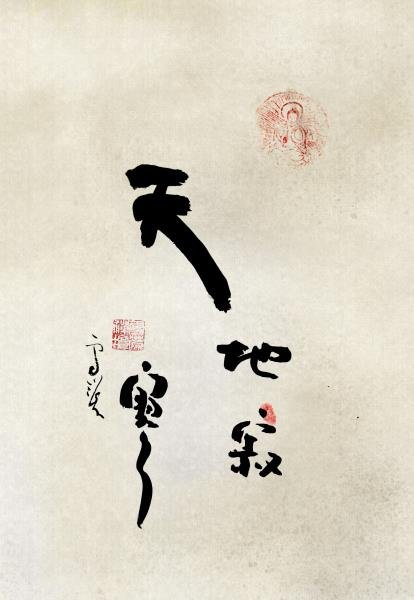 天
地寂
寥